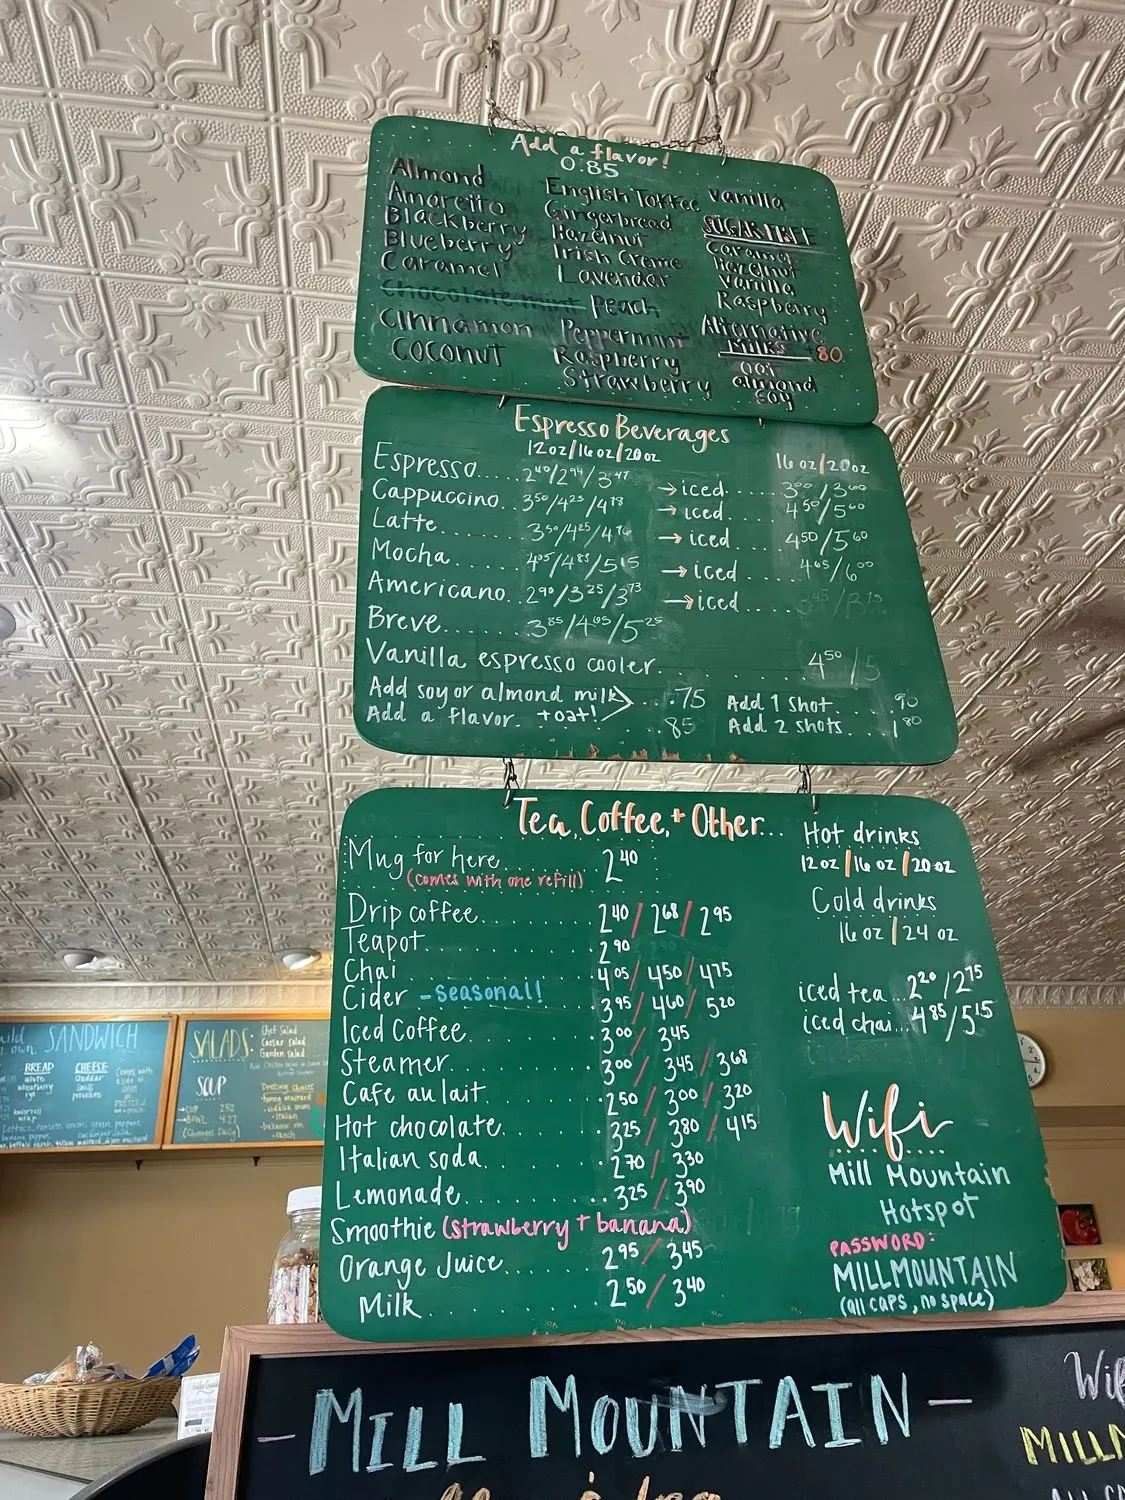 Add a flavor!
0.85
Almond
Amaretto
Blackberry
Blueberry
Caramel
Chocolate mint
Cinnamon
Coconut
English Toffee
Gingerbread
Hazelnut
Irish Creme
Lavender
Peach
Peppermint
Raspberry
Strawberry
Vanilla
SUGAR FREE
Caramel
Hazelnut
Vanilla
Raspberry
Alternative
MILKS .80
oat
almond
soy
Espresso Beverages
12oz/16oz/20oz
16oz/20oz
Espresso.... 2⁴⁰/2⁹⁴/3⁴⁷ →iced..... 3⁰⁰/3⁶⁰
Cappuccino.. 3⁵⁰/4²⁵/4⁷⁸ → iced.... 4⁵⁰/5⁶⁰
Latte....... 3⁵⁰/4²⁵/4⁷⁶ → iced.... 4⁵⁰/5⁶⁰
Mocha....... 4⁰⁵/4⁸⁵/5¹⁵ → iced.... 4⁶⁵/6⁰⁰
Americano... 2⁹⁰/3²⁵/3⁷³ →iced....
Breve....... 3⁸⁵/4⁶⁵/5²⁵
Vanilla espresso cooler. . . . . 4⁵⁰/5
Add soy or almond milk ....75
+oat!
Add a flavor. ..85
Add 1 shot.... .90
Add 2 shots. . 1⁸⁰
Tea, Coffee, + Other...
Mug for here... 2⁴⁰
(comes with one refill)
Drip coffee........ 2⁴⁰/2⁶⁸/2⁹⁵
Teapot........ 2⁹⁰
Chai ........ 4⁰⁵/4⁵⁰/4⁷⁵
Cider -seasonal! ... 3⁹⁵/4⁶⁰/5²⁰
Iced Coffee........ 3⁰⁰/3⁴⁵
Steamer........ 3⁰⁰/3⁴⁵/3⁶⁸
Cafe au lait........ 2⁵⁰/3⁰⁰/3²⁰
Hot chocolate....... 3²⁵/3⁸⁰/4¹⁵
Italian soda........ 2⁷⁰/3³⁰
Lemonade........ 3²⁵/3⁹⁰
Smoothie (strawberry + banana)
Orange Juice....... 2⁹⁵/3⁴⁵
Milk........ 2⁵⁰/3⁴⁰
Hot drinks
12oz|16oz|20oz
Cold drinks
16oz|24oz
iced tea...2²⁰/2⁷⁵
iced chai...4⁸⁵/5¹⁵
Wifi
Mill Mountain
Hotspot
PASSWORD:
MILLMOUNTAIN
(all caps, no space)
SANDWICH
BREAD
white
wheatberry
rye
CHEESE
cheddar
swiss
provolone
SALADS:
Chef Salad
Caesar salad
Garden salad
SOUP
→CUP 2.52
→BOWL 4.27
(Changes Daily)
Dressing choices
-honey mustard
-Italian
-ranch
- MILL MOUNTAIN -